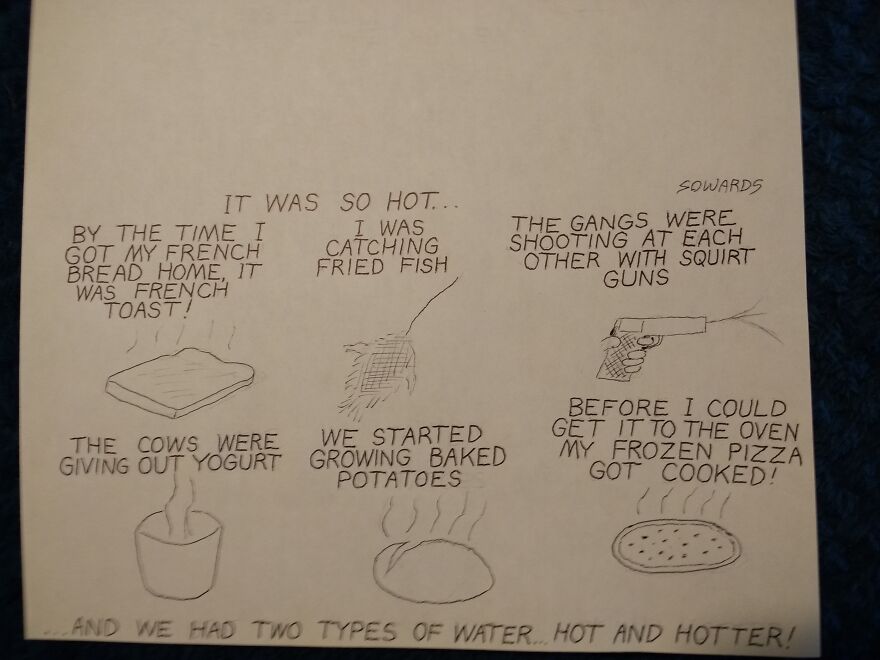 SOWARDS
IT WAS SO HOT...
BY THE TIME I
GOT MY FRENCH
BREAD HOME, IT
WAS FRENCH
TOAST!
I WAS
CATCHING
FRIED FISH
THE GANGS WERE
SHOOTING AT EACH
OTHER WITH SQUIRT
GUNS
THE COWS WERE
GIVING OUT YOGURT
WE STARTED
GROWING BAKED
POTATOES
BEFORE I COULD
GET IT TO THE OVEN
MY FROZEN PIZZA
GOT COOKED!
...AND WE HAD TWO TYPES OF WATER...HOT AND HOTTER!